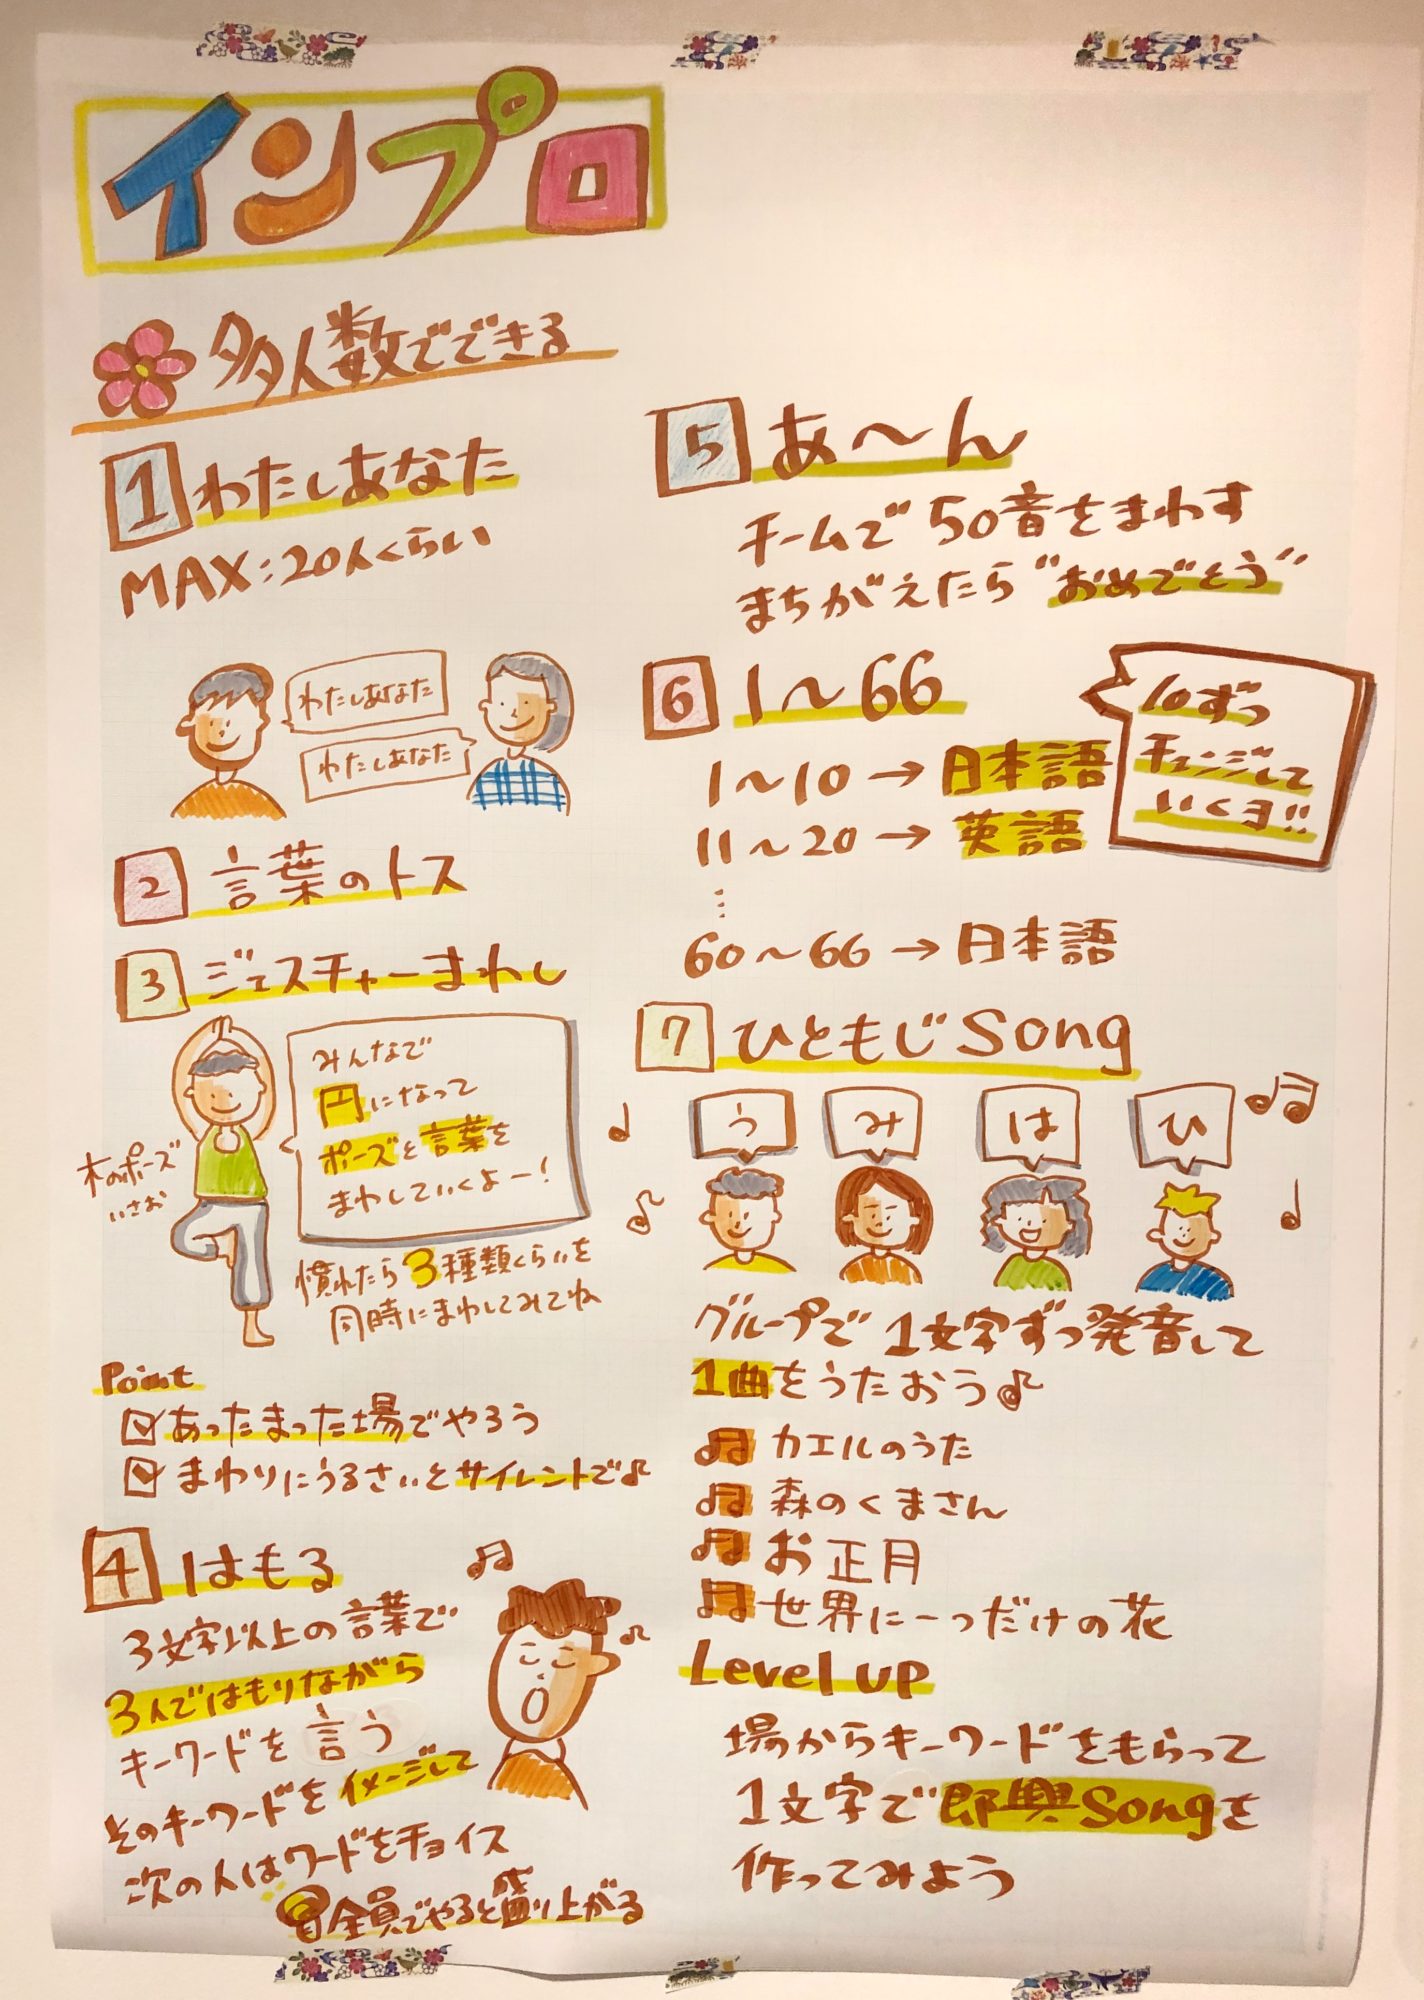 インプロ
多人数でできる
1 わたしあなた
MAX:20人くらい
わたしあなた
わたしあなた
2 言葉のトス
3 ジェスチャーまわし
みんなで
円になって
ポーズと言葉を
まわしていくよー!
木のポーズ
いさお
慣れたら3種類くらいを
同時にまわしてみてね
Point
あったまった場でやろう
まわりにうるさいとサイレントで♪
4 はもる
3文字以上の言葉で
3人ではもりながら
キーワードを言う
そのキーワードをイメージして
次の人はワードをチョイス
全員でやると盛り上がる
5 あ〜ん
チームで50音をまわす
まちがえたら"おめでとう"
6 1〜66
10ずつ
チェンジして
いくヨ!!
1〜10→日本語
11〜20→英語
⋮
60〜66→日本語
7 ひともじSong
う
み
は
ひ
グループで1文字ずつ発音して
1曲をうたおう♪
カエルのうた
森のくまさん
お正月
世界に一つだけの花
Level up
場からキーワードをもらって
1文字で即興Songを
作ってみよう